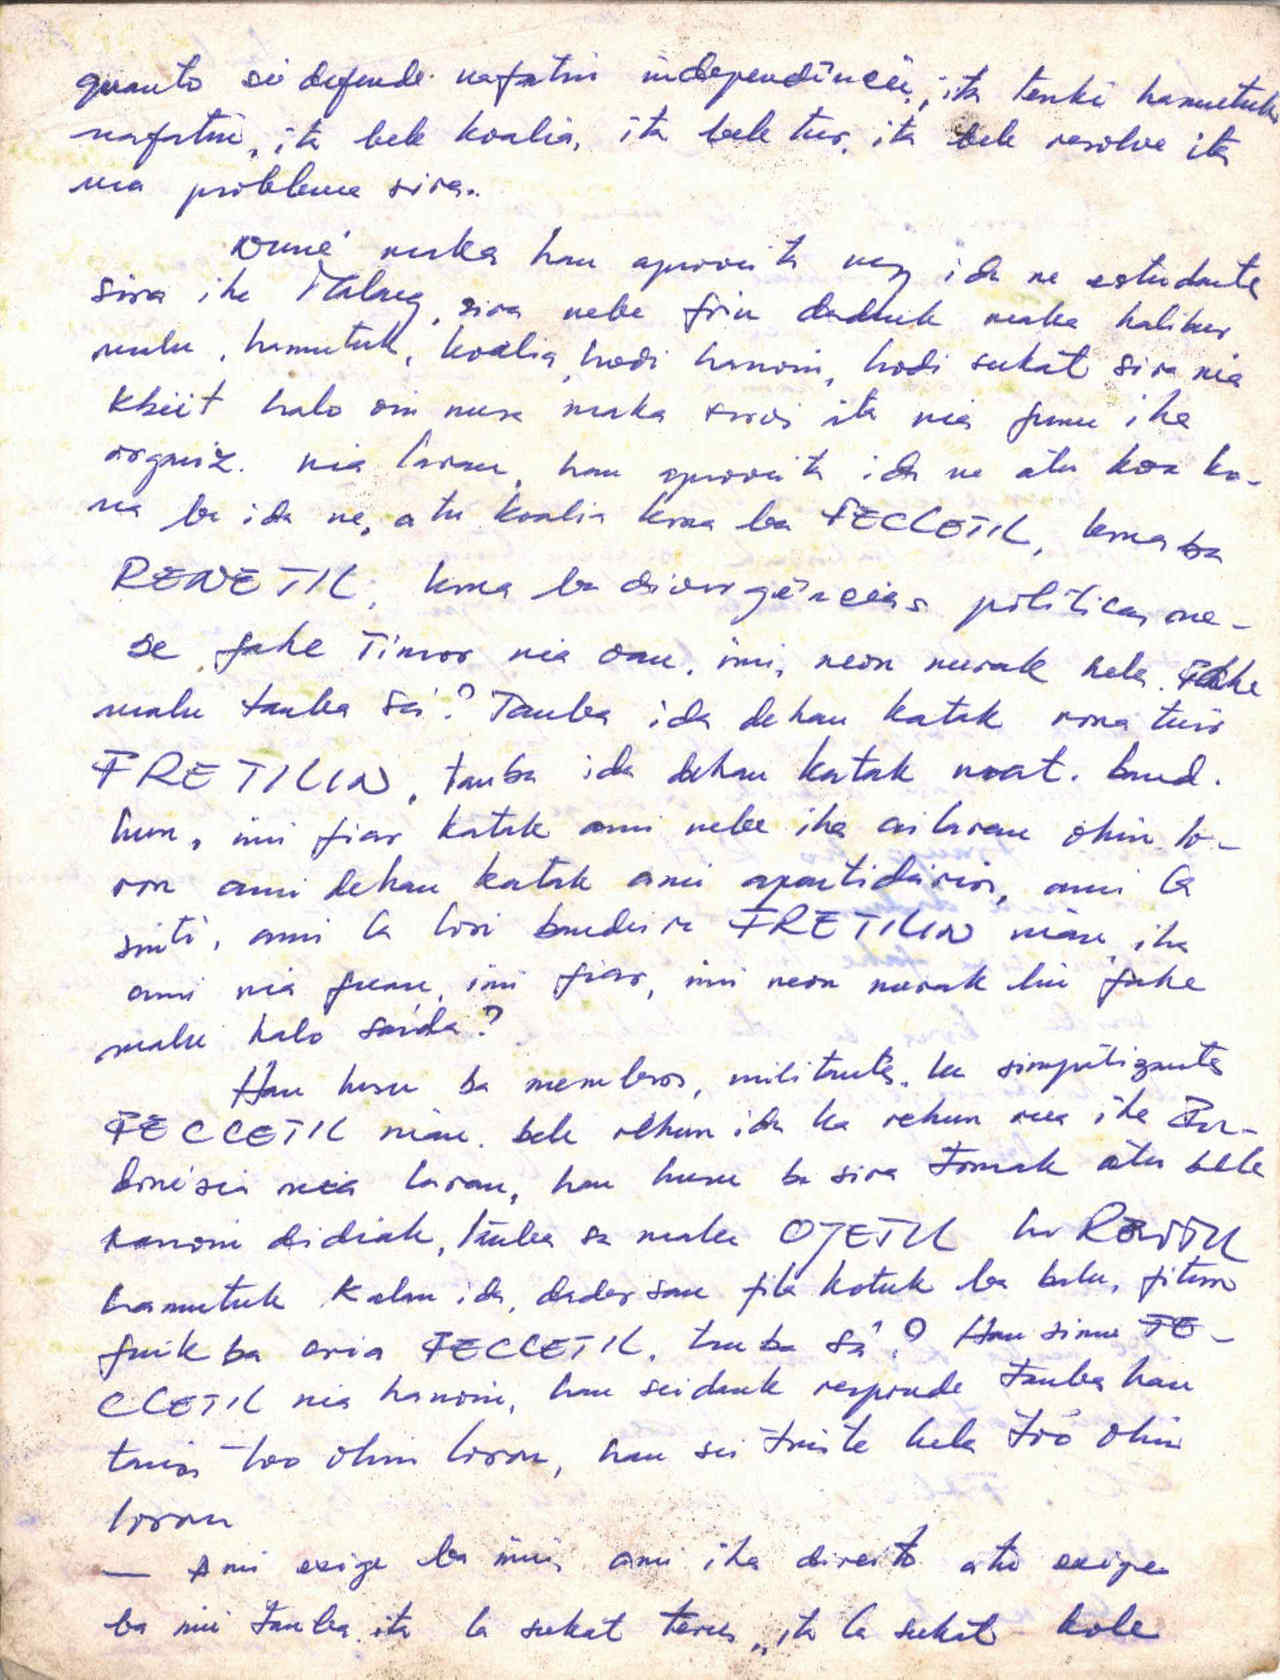 quanto sei defende nafatin independência, ita tenki hamutuk
nafatin, ita bele koalia, ita bele tur, ita bele resolve ita
nia problema sira.
Duné maka hau aproveita ida ne estudante
sira ihe Malang, sira nebe friu daduuk maka halibur
malu, hamutuk, koalia, hodi hanoin, hodi sukat sira nia
kbiit halo oin nusa maka suroi ita nia funu ihe
organiz. nia laran, hau aproveita ida ne atu koa ko-
na ba ida ne, atu koalia kona ba FECLETIL, kona ba
RENETIL, kona ba divergências políticas ne-
se fahe Timor nia oan. imi, neon nurak hela. Fahe
malu tauba sá? Tauba ida dehan katak rona tuir
FRETILIN, tauba ida dehan katak noat. band.
hun, imi fiar katak ami nebe iha ailaran ohin lo-
ron ami dehan katak ami apartidários, ami la
sinti, ami la lori bandeira FRETILIN nian, iha
ami nia funu, imi fiar, imi neon nurak liu fahe
malu halo saida?
Hau husu ba membros, militantes, ku simpatizantes
FECLETIL nian. bele rehun ida ka rehun rua iha In-
donésia nia laran, hau husu ba sira tomak atu bele
hanoin didiak, tauba sa maka OJETIL ho RENETIL
hamutuk kalan ida, dadersan fila kotuk ba balu, fitun
fuik ba aria FECLETIL, tauba sá? Hau simu FE-
CLETIL nia hanoin, hau seidauk responde tauba hau
tanis too ohin loron, hau sei triste hela tóo ohin
loron
— Ami exige ba imi, ami iha direito atu exige
ba imi tauba ita la sukat terus, ita la sukat kole